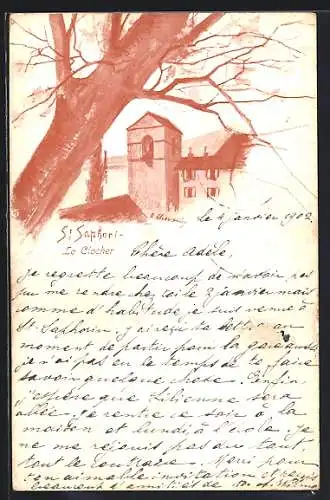 St Saphorin
Le Clocher
le 4 janvier 1902
Chère Adèle,
je regrette beaucoup de n'avoir pas
pu me rendre chez toi le 2 janvier mais
comme d'habitude je suis venue à
St. Saphorin. j'ai reçu ta lettre au
moment de partir pour la gare aussi
je n'ai pas eu le temps de te faire
savoir quelque chose. Enfin
j'espère que Lilienne sera
allée. je rentre ce soir à la
maison et lundi à l'école. je
ne me réjouis pas du tout,
tout le contraire. Merci pour
ton aimable invitation et reçois
beaucoup d'amitiés de